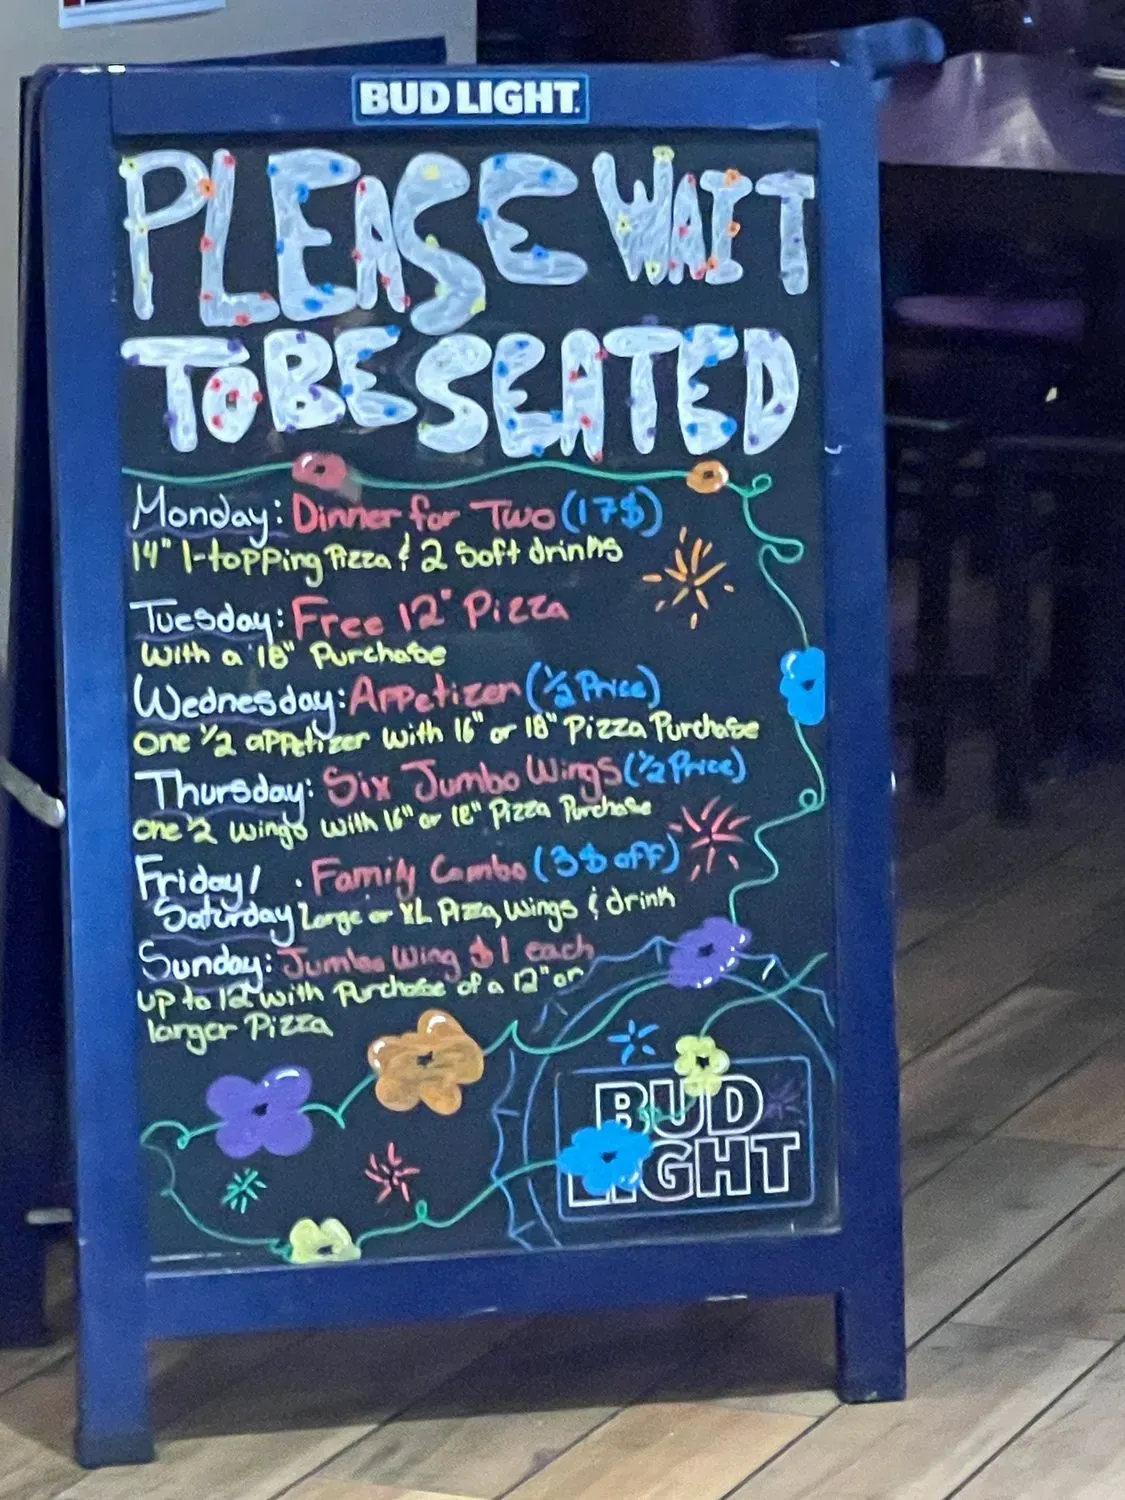 BUD LIGHT
PLEASE WAIT
TO BE SEATED
Monday: Dinner for Two (17$)
14" 1-topping Pizza & 2 Soft drinks
Tuesday: Free 12" Pizza
With a 18" Purchase
Wednesday: Appetizer (1/2 Price)
One 1/2 appetizer with 16" or 18" Pizza Purchase
Thursday: Six Jumbo Wings (1/2 Price)
One 1/2 wings with 16" or 18" Pizza Purchase
Friday/ Family Combo (3$ off)
Saturday Large or XL Pizza, Wings & drink
Sunday: Jumbo Wing $1 each
up to 12 with Purchase of a 12" or
larger Pizza
BUD
LIGHT